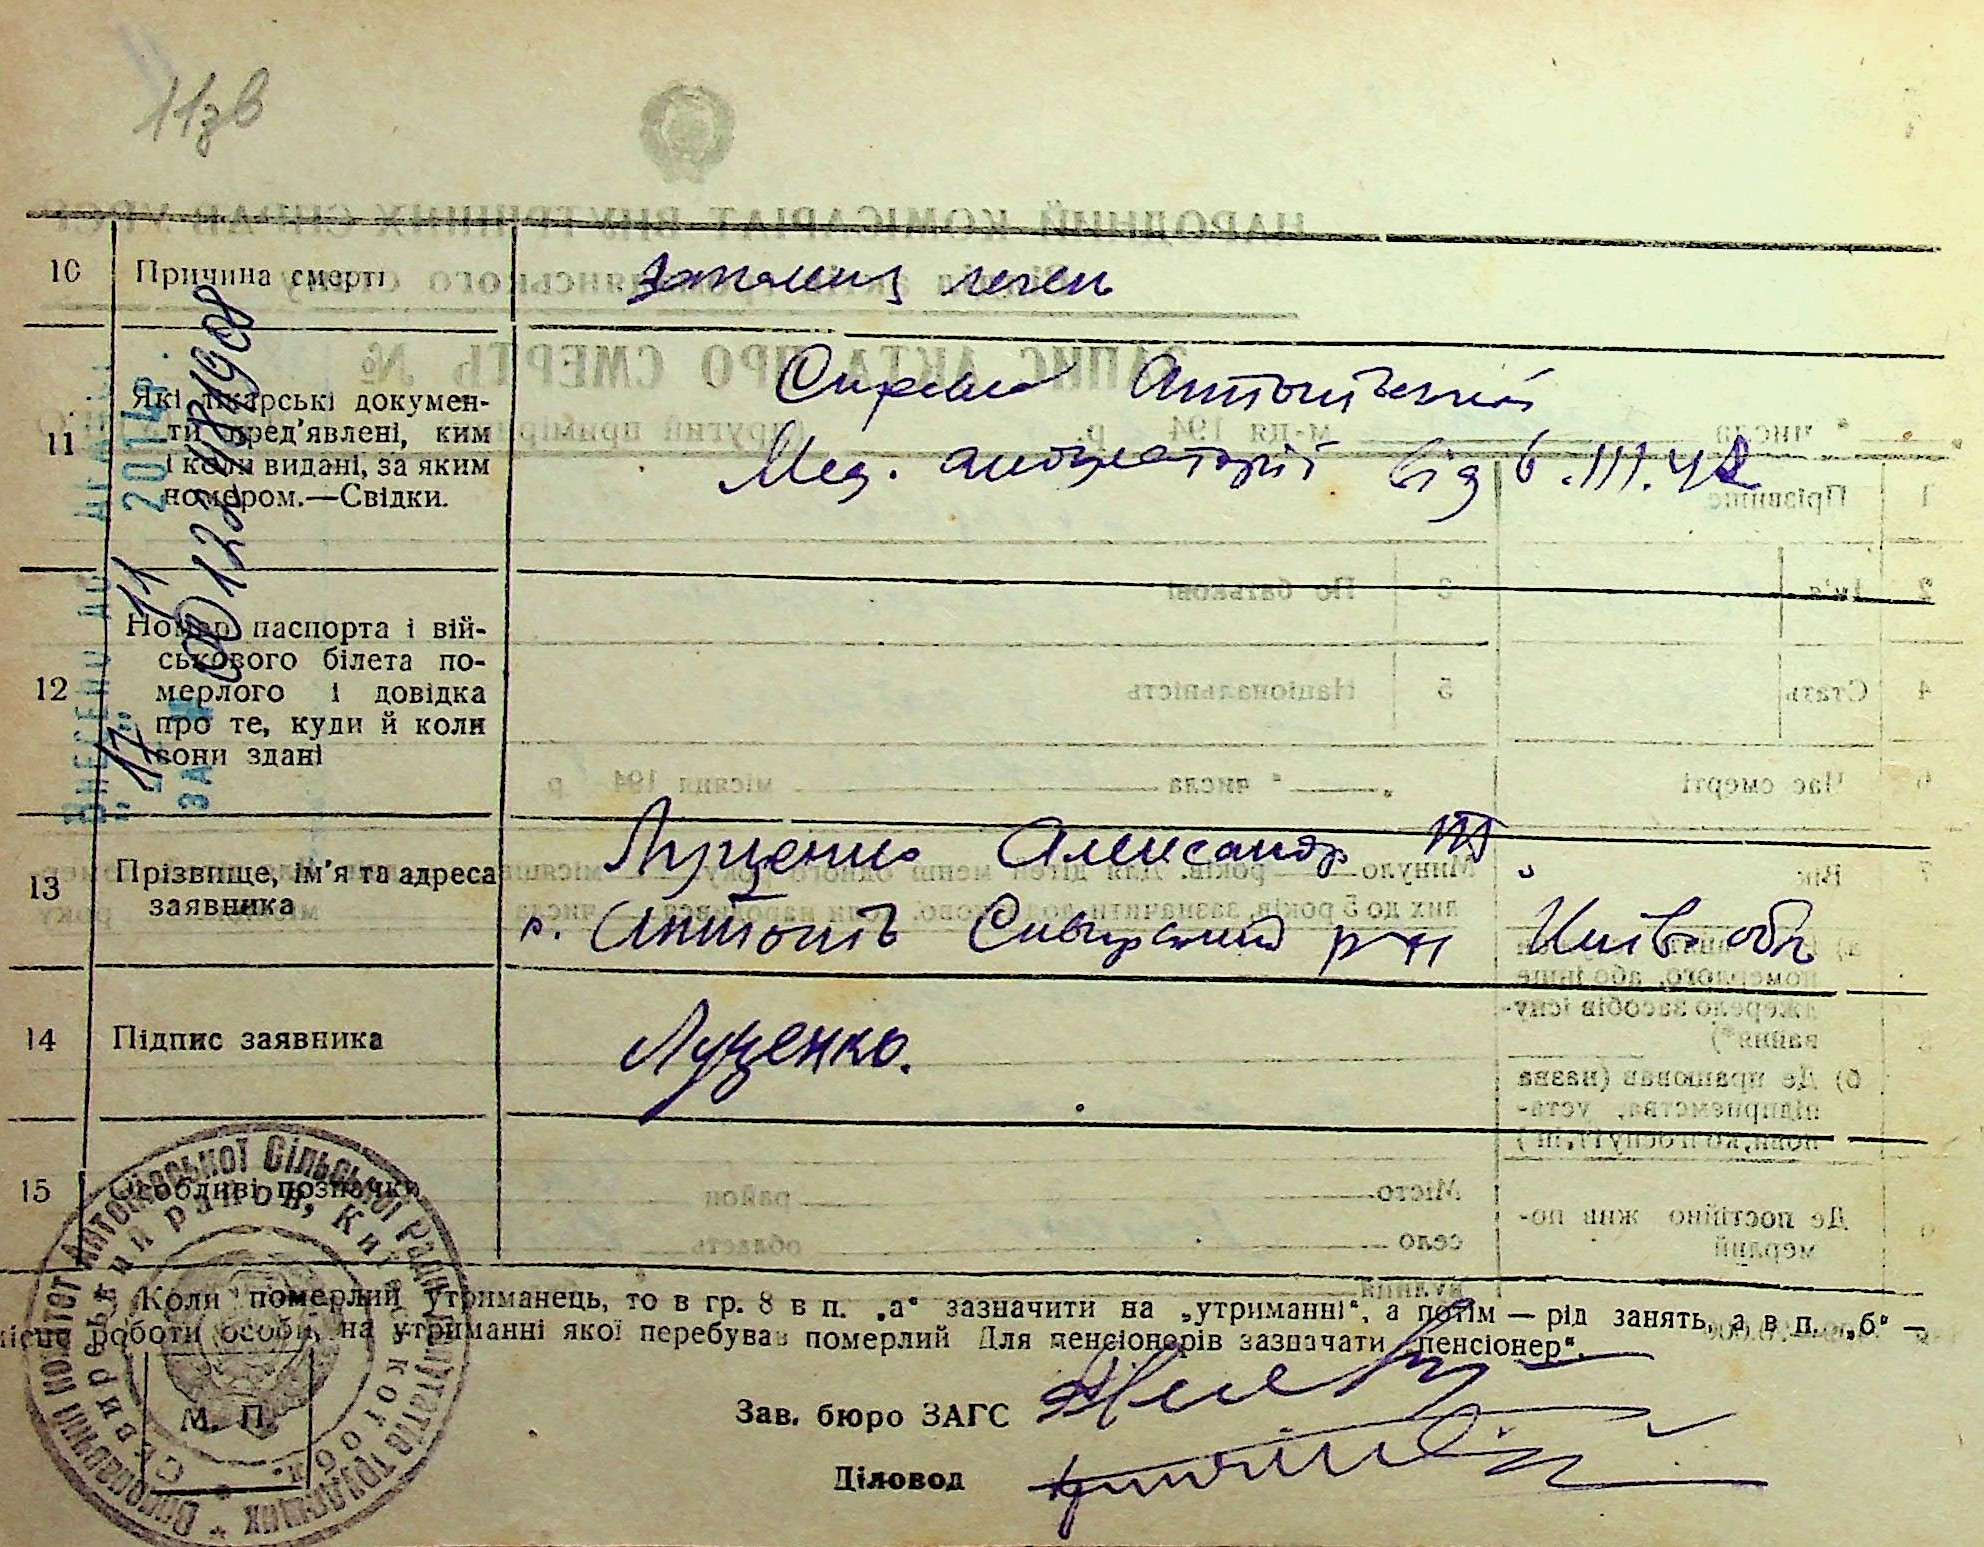 10 Причина смерти
запалення легень
11 Які лікарські докумен-
ти пред’явлені, ким
і коли видані, за яким
номером.—Свідки.
Справка Антонівської
Мед. амбулаторії від 6.III.42
12 Номер паспорта і вій-
ськового білета по-
мерлого і довідка
про те, куди й коли
вони здані
13 Прізвище, ім’я та адреса
заявника
Луценко Александр
с. Антонів Сквирський р-н Київ обл
14 Підпис заявника
Луценко.
15 Особливі позначки
Коли померлий утриманець, то в гр. 8 в п. „а“ зазначити на „утриманні“, а потім — рід занять, а в п. „б“ —
місце роботи особи, на утриманні якої перебував померлий Для пенсіонерів зазначати „пенсіонер“.
Зав. бюро ЗАГС
Діловод
М. П.
Виконавчий комітет Антонівської Сільської Ради депутатів трудящих
Сквирський район, Київської обл.
ВНЕСЕНО ДО
17 11 2014р.
ЗА №